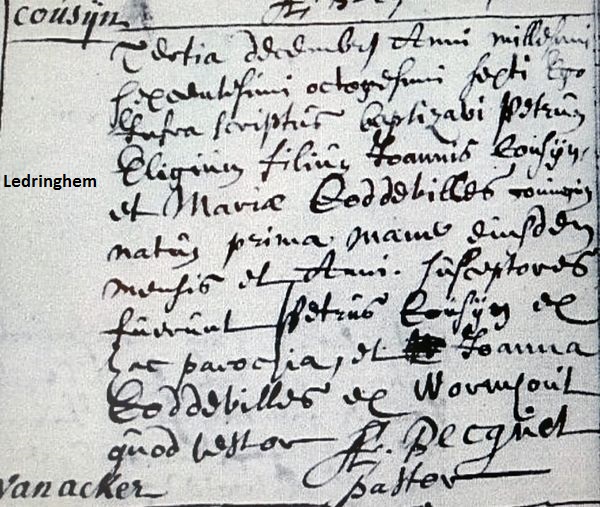 cousÿn
Tertia decembris Anni millesimi
sexcentesimi octogesimi sexti Ego
Infra scriptus baptizavi Petrum
Eligium filiu Joannis Cousÿn
et Mariæ Coddevilles coniugu
Ledringhem
natu prima mane eiusdem
mensis et Anni. susceptores
fuerunt Petrus Cousÿn ex
hac parochia, et Joanna
Coddevilles ex Wormhout
quod testor F. Decquet
pastor
Vanacker